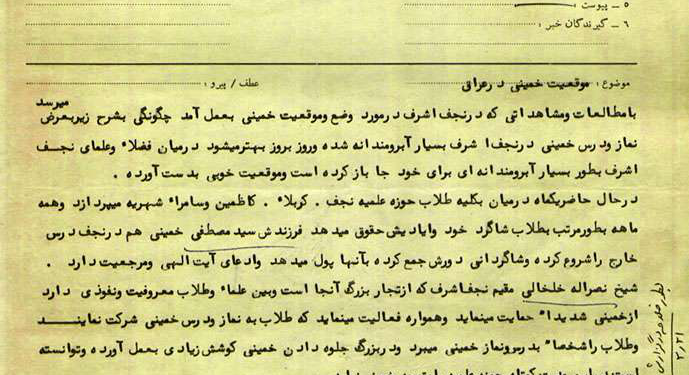 ۵ ـ پیوست :
۶ ـ گیرندگان خبر :
موضوع : موقعیت خمینی د رعراق عطف / پیرو :
بامطالعات ومشاهداتی که د رنجف اشرف د رمورد وضع وموقعیت خمینی بعمل آمد چگونگی بشرح زیربعرض میرسد
نماز ود رس خمینی د رنجف ا شرف بسیار آبرومند انه شده وروز بروز بهترمیشود د رمیان فضلاء وعلمای نجف
اشرف بطور بسیار آبرومند انه ای برای خود جا باز کرده است وموقعیت خوبی بد ست آورده .
د رحال حاضریکماه د رمیان بکلیه طلاب حوزه علمیه نجف . کربلاء . کاظمین وسامراء شهریه میپرد ازد وهمه
ماهه بطورمرتب بطلاب شاگرد خود وایاد یش حقوق مید هد فرزند ش سید مصطفی خمینی هم د رنجف د رس
خارج راشروع کرده وشاگرد انی د ورش جمع کرده بآنها پول مید هد واد عای آیت الهی ومرجعیت د ارد .
شیخ نصراله خلخالی مقیم نجف اشرف که ازتجار بزرگ آنجا است وبین علماء وطلاب معروفیت ونفوذ ی د ارد
ازخمینی شد یدا" حمایت مینماید وهمواره فعالیت مینماید که طلاب به نماز ود رس خمینی شرکت نمایند
وطلاب راشخصا" بد رس ونماز خمینی میبرد ود ربزرگ جلوه د ادن خمینی کوشش زیاد ی بعمل آورده وتوانسته